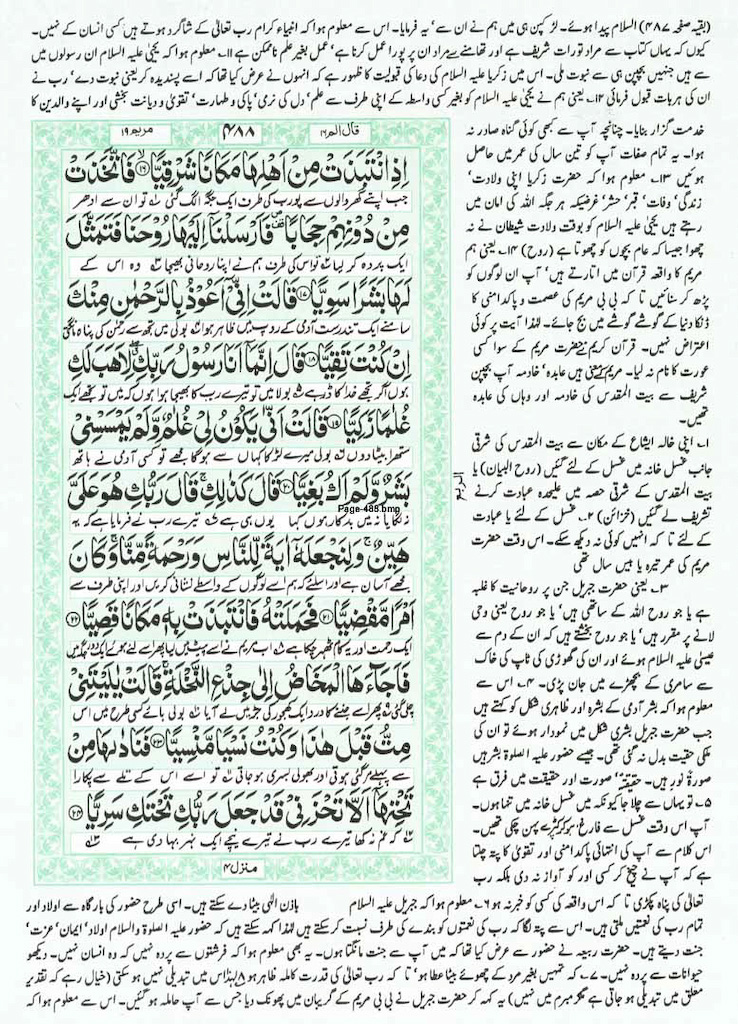 (بقیہ صفحہ ۴۸۷) السلام پیدا ہوئے۔ لڑ کپن ہی میں ہم نے ان سے' یہ فرمایا۔ اس سے معلوم ہوا کہ انبیاء کرام رب تعالیٰ کے شاگرد ہوتے ہیں کسی انسان کے نہیں۔
کیوں کہ یہاں کتاب سے مراد تورات شریف ہے اور تھامنے سے مراد اس پر پورا عمل کرنا ہے' عمل بغیر علم ناممکن ہے ۱۱۔ معلوم ہوا کہ یحییٰ علیہ السلام ان رسولوں میں
سے ہیں جنہیں بچپن ہی سے نبوت ملی۔ اس میں زکریا علیہ السلام کی دعا کی قبولیت کا ظہور ہے کہ انہوں نے عرض کیا تھا کہ اسے پسندیدہ کر یعنی نبوت دے' رب نے
ان کی ہر بات قبول فرمائی ۱۲۔ یعنی ہم نے یحییٰ علیہ السلام کو بغیر کسی واسطہ کے اپنی طرف سے علم' دل کی نرمی' پاکی و طہارت' تقویٰ و دیانت بخشی اور اپنے والدین کا
خدمت گزار بنایا۔ چنانچہ آپ سے کبھی کوئی گناہ صادر نہ
ہوا۔ یہ تمام صفات آپ کو تین سال کی عمر میں حاصل
ہوئیں ۱۳۔ معلوم ہوا کہ حضرت زکریا اپنی ولادت'
زندگی' وفات' قبر' حشر' غرضیکہ ہر جگہ اللہ کی امان میں
رہتے ہیں یحییٰ علیہ السلام کو بوقت ولادت شیطان نے نہ
چھوا جیسا کہ عام بچوں کو چھوتا ہے (روح) ۱۴۔ یعنی ہم
مریم کا واقعہ قرآن میں اتارتے ہیں' آپ ان لوگوں کو
پڑھ کر سنائیں تا کہ بی بی مریم کی عصمت و پاکدامنی کا
ڈنکا دنیا کے گوشے گوشے میں بج جائے۔ لہٰذا آیت پر کوئی
اعتراض نہیں۔ قرآن کریم نے حضرت مریم کے سوا کسی
عورت کا نام نہ لیا۔ مریم کے معنی ہیں عابدہ' خادمہ آپ بچپن
شریف سے بیت المقدس کی خادمہ اور وہاں کی عابدہ
تھیں۔
۱۔ اپنی خالہ ایشاع کے مکان سے بیت المقدس کی شرقی
جانب غسل خانہ میں غسل کے لئے گئیں (روح البیان) یا
بیت المقدس کے شرقی حصہ میں علیحدہ عبادت کرنے
تشریف لے گئیں (خزائن) ۲۔ غسل کے لئے یا عبادت
کے لئے تا کہ انہیں کوئی نہ دیکھ سکے۔ اس وقت حضرت
مریم کی عمر تیرہ یا بیس سال تھی
۳۔ یعنی حضرت جبریل جن پر روحانیت کا غلبہ
ہے یا جو روح اللہ کے ساتھی ہیں' یا جو روح یعنی وحی
لانے پر مقرر ہیں' یا جو روح بخشتے ہیں کہ ان کے دم سے
عیسیٰ علیہ السلام ہوئے اور ان کی گھوڑی کی ٹاپ کی خاک
سے سامری کے بچھڑے میں جان پڑی۔ ۴۔ اس سے
معلوم ہوا کہ بشر آدمی کے بشرہ اور ظاہری شکل کو کہتے ہیں
جب حضرت جبریل بشری شکل میں نمودار ہوئے تو ان کی
ملکی حقیقت بدل نہ گئی تھی۔ جیسے حضور علیہ الصلوۃ بشر ہیں
صورۃ نور ہیں۔ حقیقۃ' صورت اور حقیقت میں فرق ہے
۵۔ تو یہاں سے چلا جا کیونکہ میں غسل خانہ میں تنہا ہوں۔
آپ اس وقت غسل سے فارغ ہو کر کپڑے پہن چکی تھیں۔
اس کلام سے آپ کی انتہائی پاکدامنی اور تقویٰ کا پتہ چلتا
ہے کہ آپ نے چیخ کر کسی اور کو آواز نہ دی بلکہ رب
قال الم ۱۶
۴۸۸
مریم ۱۹
اِذِ انْتَبَذَتْ مِنْ اَهْلِهَا مَكَانًا شَرْقِيًّا ۱۶ فَاتَّخَذَتْ
جب اپنے گھر والوں سے پورب کی طرف ایک جگہ الگ گئی تو ان سے ادھر
مِنْ دُوْنِهِمْ حِجَابًا فَاَرْسَلْنَاۤ اِلَيْهَا رُوْحَنَا فَتَمَثَّلَ
ایک پردہ کر لیا تو اس کی طرف ہم نے اپنا روحانی بھیجا وہ اس کے
لَهَا بَشَرًا سَوِيًّا ۱۷ قَالَتْ اِنِّيْۤ اَعُوْذُ بِالرَّحْمٰنِ مِنْكَ
سامنے ایک تندرست آدمی کے روپ میں ظاہر ہوا بولی میں تجھ سے رحمٰن کی پناہ مانگتی
اِنْ كُنْتَ تَقِيًّا ۱۸ قَالَ اِنَّمَاۤ اَنَا رَسُوْلُ رَبِّكِ لِاَهَبَ لَكِ
ہوں اگر تجھے خدا کا ڈر ہے بولا میں تو تیرے رب کا بھیجا ہوا ہوں کہ میں تجھے ایک
غُلٰمًا زَكِيًّا ۱۹ قَالَتْ اَنّٰى يَكُوْنُ لِيْ غُلٰمٌ وَّلَمْ يَمْسَسْنِيْ
ستھرا بیٹا دوں بولی میرے لڑکا کہاں سے ہوگا مجھے تو کسی آدمی نے ہاتھ
بَشَرٌ وَّلَمْ اَكُ بَغِيًّا ۲۰ قَالَ كَذٰلِكِ قَالَ رَبُّكِ هُوَ عَلَيَّ
نہ لگایا نہ میں بدکار ہوں کہا یوں ہی ہے تیرے رب نے فرمایا ہے کہ یہ
Page-488.bmp
هَيِّنٌ وَلِنَجْعَلَهٗۤ اٰيَةً لِّلنَّاسِ وَرَحْمَةً مِّنَّا وَكَانَ
مجھے آسان ہے اور اسلئے کہ ہم اسے لوگوں کے واسطے نشانی کریں اور اپنی طرف سے
اَمْرًا مَّقْضِيًّا ۲۱ فَحَمَلَتْهُ فَانْتَبَذَتْ بِهٖ مَكَانًا قَصِيًّا ۲۲
ایک رحمت اور یہ کام ٹھہر چکا ہے اب مریم نے اسے پیٹ میں لیا پھر اسے لئے ہوئے ایک دور جگہ میں
فَاَجَآءَهَا الْمَخَاضُ اِلٰى جِذْعِ النَّخْلَةِ قَالَتْ يٰلَيْتَنِيْ
چلی گئی پھر اسے جننے کا درد ایک کھجور کی جڑ میں لے آیا بولی ہائے کسی طرح میں اس
مِتُّ قَبْلَ هٰذَا وَكُنْتُ نَسْيًا مَّنْسِيًّا ۲۳ فَنَادٰىهَا مِنْ
سے پہلے مر گئی ہوتی اور بھولی بسری ہو جاتی تو اسے اس کے تلے سے پکارا
تَحْتِهَاۤ اَلَّا تَحْزَنِيْ قَدْ جَعَلَ رَبُّكِ تَحْتَكِ سَرِيًّا ۲۴
کہ غم نہ کھا تیرے رب نے تیرے نیچے ایک نہر بہا دی ہے
منزل ۴
تعالیٰ کی پناہ پکڑی تا کہ اس واقعہ کی کسی کو خبر نہ ہو ۶۔ معلوم ہوا کہ جبریل علیہ السلام باذن الٰہی بیٹا دے سکتے ہیں۔ اسی طرح حضور کی بارگاہ سے اولاد اور
تمام رب کی نعمتیں ملتی ہیں۔ اس سے پتہ لگا کہ رب کی نعمتوں کو بندے کی طرف نسبت کر سکتے ہیں لہٰذا کہہ سکتے ہیں کہ حضور علیہ الصلوۃ والسلام اولاد' ایمان' عزت'
جنت دیتے ہیں۔ حضرت ربیعہ نے حضور سے عرض کیا تھا کہ میں آپ سے جنت مانگتا ہوں۔ یہ بھی معلوم ہوا کہ فرشتوں سے پردہ نہیں کہ وہ انسان نہیں۔ دیکھو
حیوانات سے پردہ نہیں۔ ۷۔ کہ تمہیں بغیر مرد کے چھوئے بیٹا عطا ہو' تا کہ رب تعالیٰ کی قدرت کاملہ ظاہر ہو ۸ لہٰذا اس میں تبدیلی نہیں ہو سکتی (خیال رہے کہ تقدیر
معلق میں تبدیلی ہو جاتی ہے مگر مبرم میں نہیں) یہ کہہ کر حضرت جبریل نے بی بی مریم کے گریبان میں پھونک دیا جس سے آپ حاملہ ہو گئیں۔ اس سے معلوم ہوا کہ